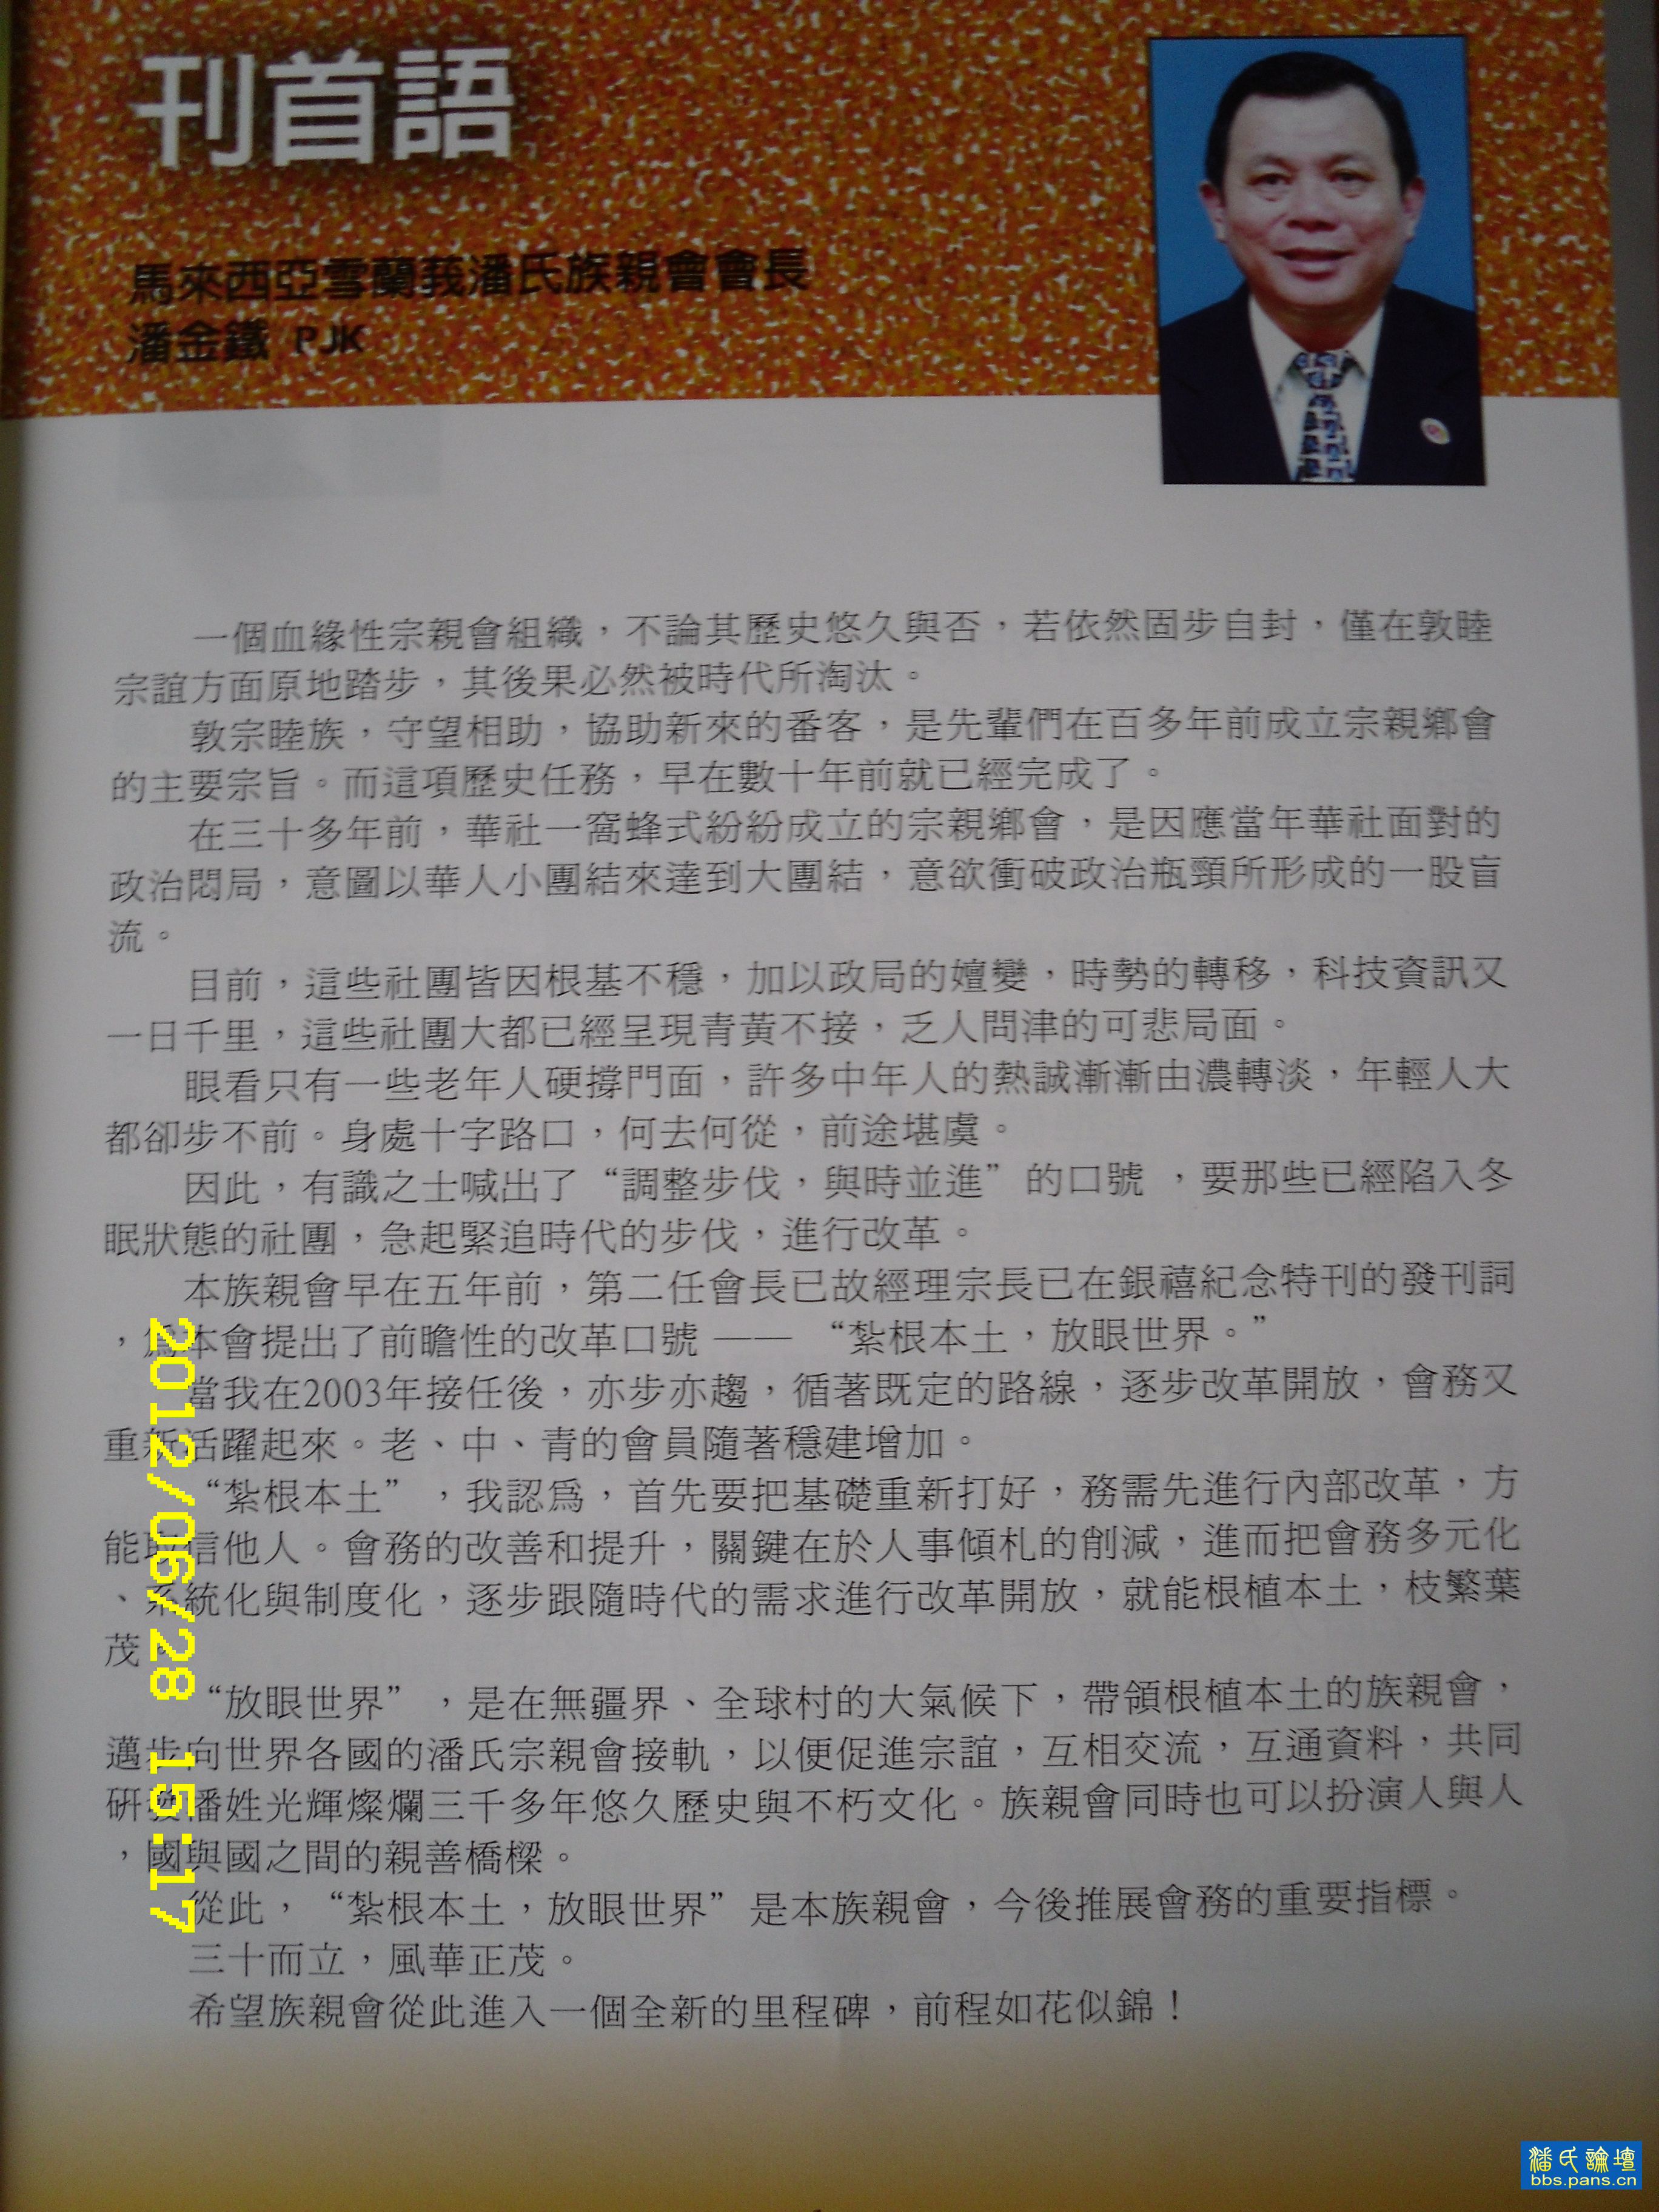 刊首語
馬來西亞雪蘭莪潘氏族親會會長
潘金鐵 PJK
一個血緣性宗親會組織，不論其歷史悠久與否，若依然固步自封，僅在敦睦
宗誼方面原地踏步，其後果必然被時代所淘汰。
敦宗睦族，守望相助，協助新來的番客，是先輩們在百多年前成立宗親鄉會
的主要宗旨。而這項歷史任務，早在數十年前就已經完成了。
在三十多年前，華社一窩蜂式紛紛成立的宗親鄉會，是因應當年華社面對的
政治悶局，意圖以華人小團結來達到大團結，意欲衝破政治瓶頸所形成的一股盲
流。
目前，這些社團皆因根基不穩，加以政局的嬗變，時勢的轉移，科技資訊又
一日千里，這些社團大都已經呈現青黃不接，乏人問津的可悲局面。
眼看只有一些老年人硬撐門面，許多中年人的熱誠漸漸由濃轉淡，年輕人大
都卻步不前。身處十字路口，何去何從，前途堪虞。
因此，有識之士喊出了“調整步伐，與時並進”的口號，要那些已經陷入冬
眠狀態的社團，急起緊追時代的步伐，進行改革。
本族親會早在五年前，第二任會長已故經理宗長已在銀禧紀念特刊的發刊詞
，爲本會提出了前瞻性的改革口號 —— “紮根本土，放眼世界。”
當我在2003年接任後，亦步亦趨，循著既定的路線，逐步改革開放，會務又
重新活躍起來。老、中、青的會員隨著穩建增加。
“紮根本土”，我認爲，首先要把基礎重新打好，務需先進行內部改革，方
能取信他人。會務的改善和提升，關鍵在於人事傾札的削減，進而把會務多元化
、系統化與制度化，逐步跟隨時代的需求進行改革開放，就能根植本土，枝繁葉
茂。
“放眼世界”，是在無疆界、全球村的大氣候下，帶領根植本土的族親會，
邁步向世界各國的潘氏宗親會接軌，以便促進宗誼，互相交流，互通資料，共同
研發潘姓光輝燦爛三千多年悠久歷史與不朽文化。族親會同時也可以扮演人與人
，國與國之間的親善橋樑。
從此，“紮根本土，放眼世界”是本族親會，今後推展會務的重要指標。
三十而立，風華正茂。
希望族親會從此進入一個全新的里程碑，前程如花似錦！
2012/06/28 15:17
潘氏論壇
bbs.pans.cn